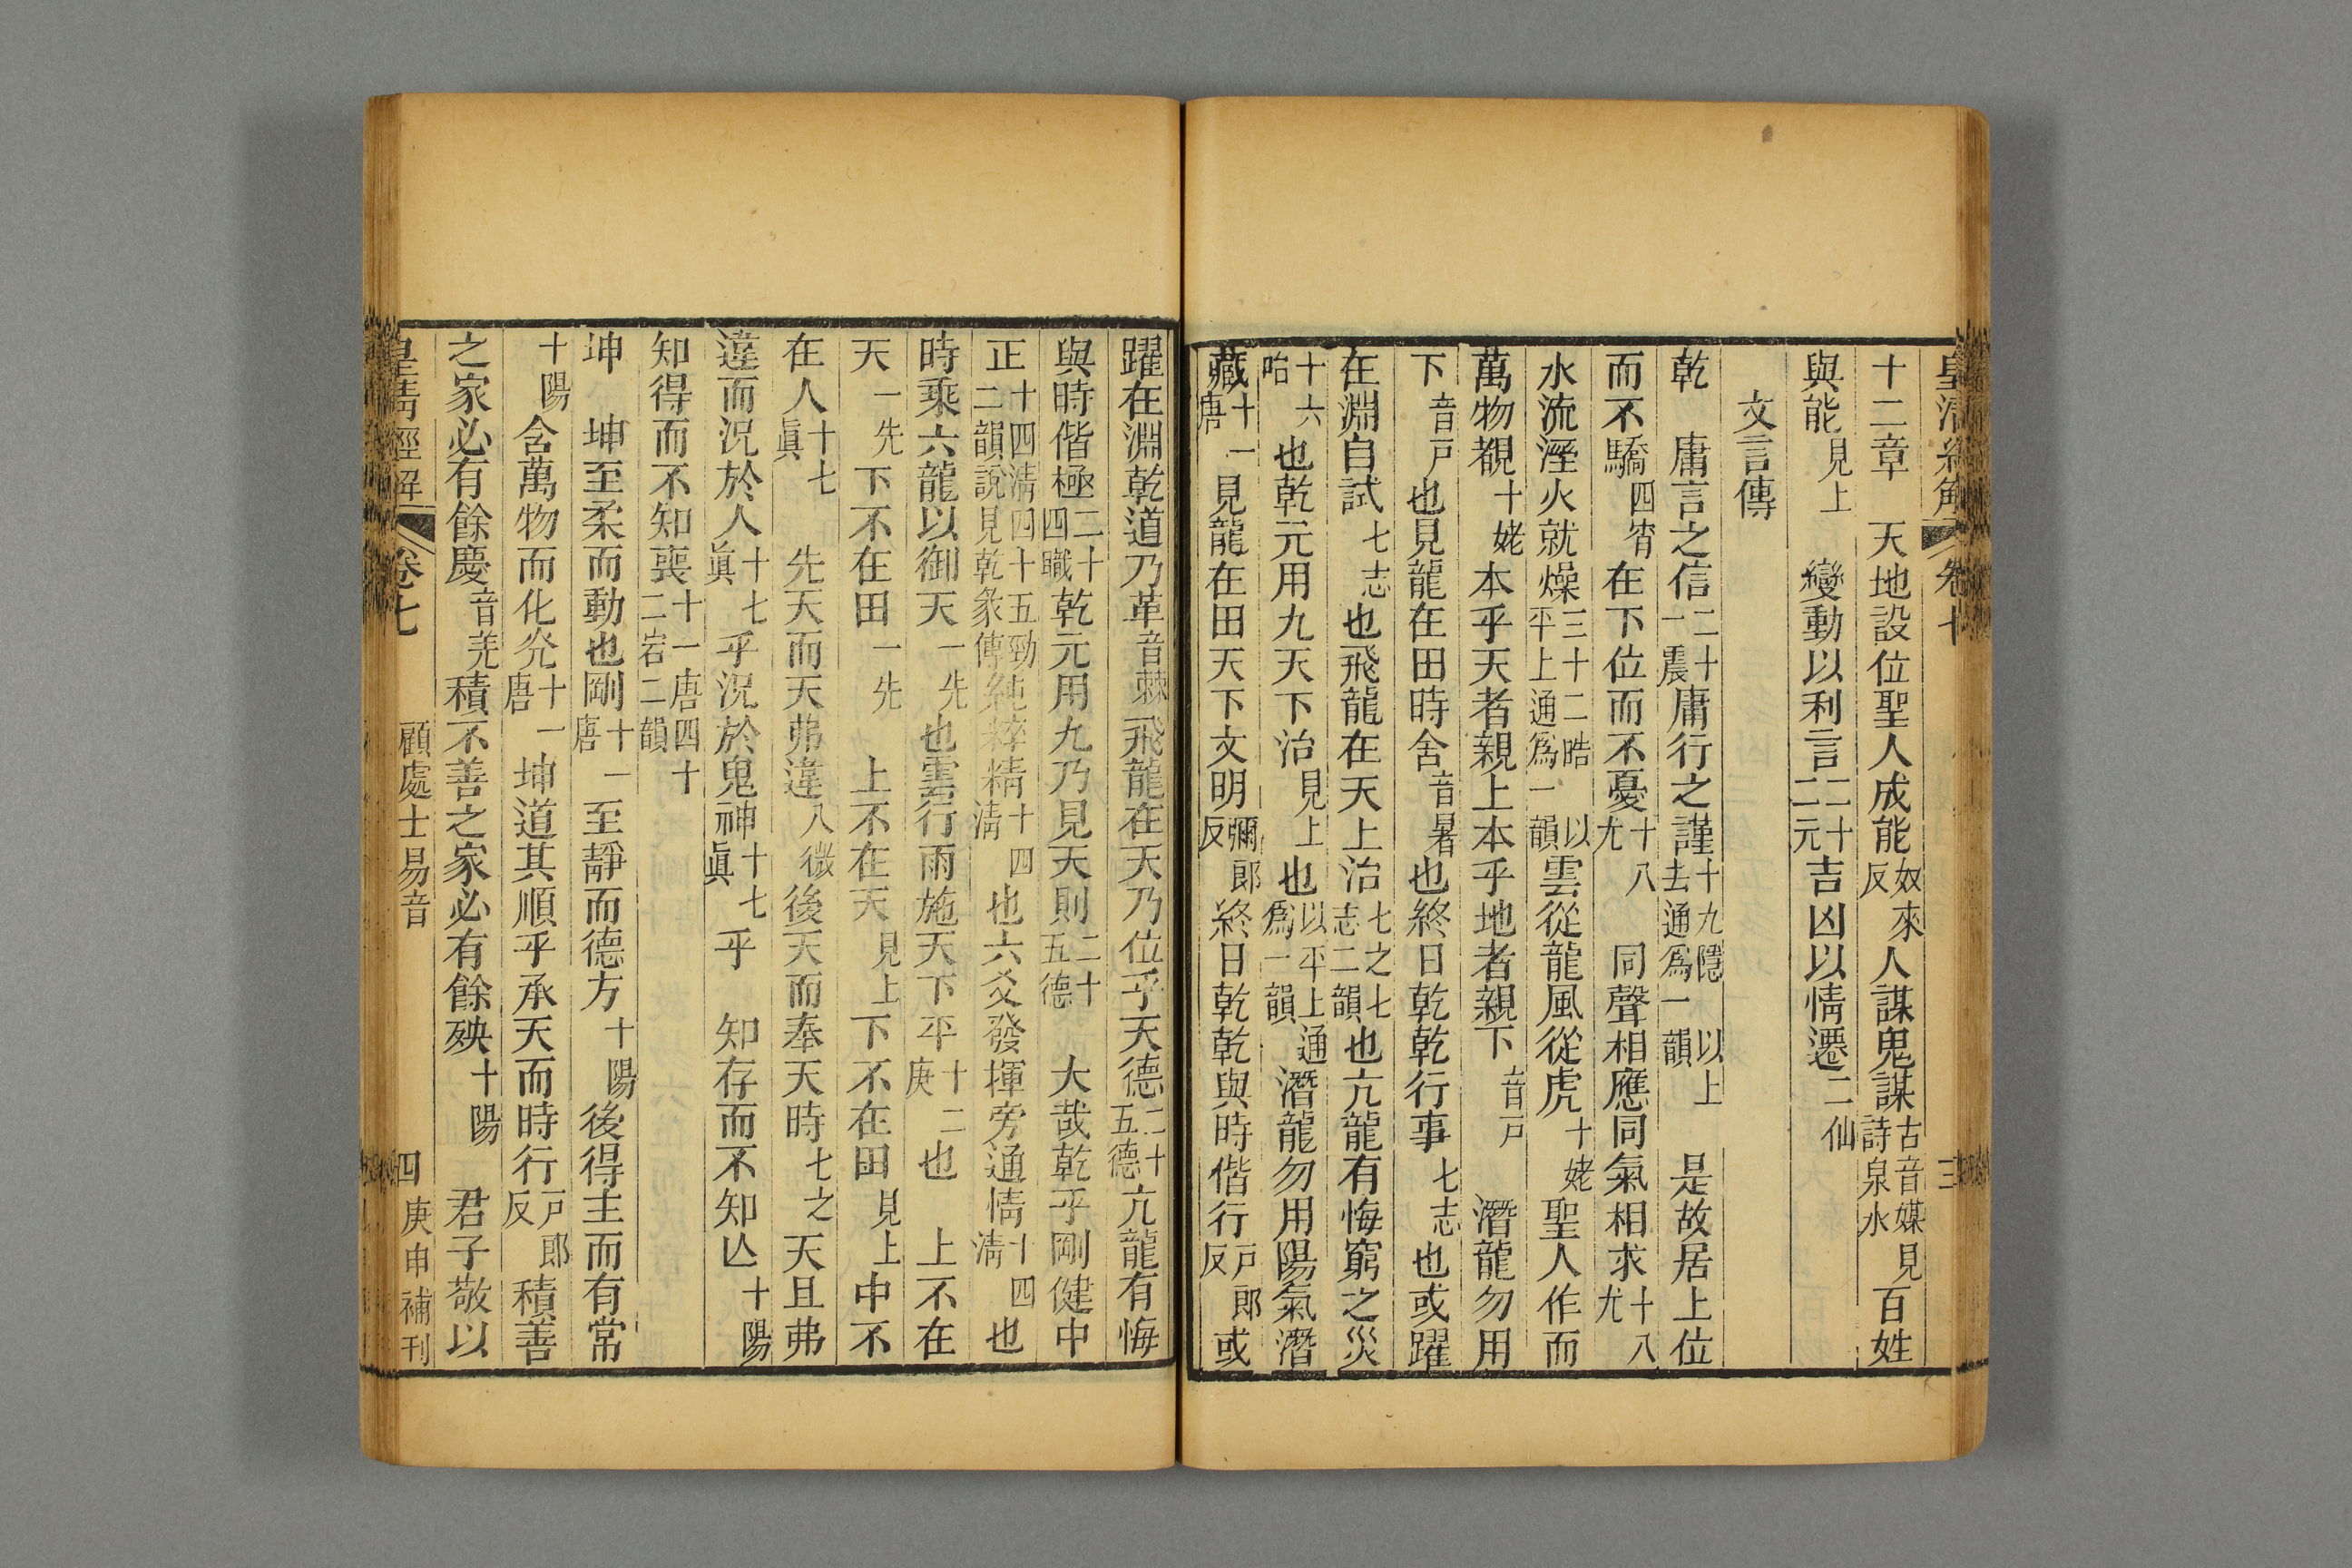 皇清經解 卷七 三
十二章　天地設位聖人成能奴來反人謀鬼謀古音媒見詩泉水百姓
與能見上　變動以利言二十二元吉凶以情遷二仙
文言傳
乾　庸言之信二十一震庸行之謹十九隱去通爲一韻以上　是故居上位
而不驕四宵在下位而不憂十八尤　同聲相應同氣相求十八尤
水流溼火就燥三十二晧平上通爲一韻以雲從龍風從虎十姥聖人作而
萬物覩十姥本乎天者親上本乎地者親下音戶　潛龍勿用
下音戶也見龍在田時舍音暑也終日乾乾行事七志也或躍
在淵自試七志也飛龍在天上治七之七志二韻也亢龍有悔窮之災
十六咍也乾元用九天下治見上也以平上通爲一韻潛龍勿用陽氣潛
藏十一唐見龍在田天下文明彌郎反終日乾乾與時偕行戶郎反或
躍在淵乾道乃革音棘飛龍在天乃位乎天德二十五德亢龍有悔
與時偕極二十四職乾元用九乃見天則二十五德　大哉乾乎剛健中
正十四清四十五勁二韻說見乾彖傳純粹精十四清也六爻發揮旁通情十四清也
時乘六龍以御天一先也雲行雨施天下平十二庚也　上不在
天一先下不在田一先　上不在天見上下不在田見上中不
在人十七眞　先天而天弗違八微後天而奉天時七之天且弗
違而況於人十七眞乎況於鬼神十七眞乎　知存而不知亾十陽
知得而不知喪十一唐四十二宕二韻
坤　坤至柔而動也剛十一唐至靜而德方十陽後得主而有常
十陽含萬物而化光十一唐坤道其順乎承天而時行戶郎反積善
之家必有餘慶音羌積不善之家必有餘殃十陽　君子敬以
皇清經解 卷七 顧處士易音 四 庚申補刊